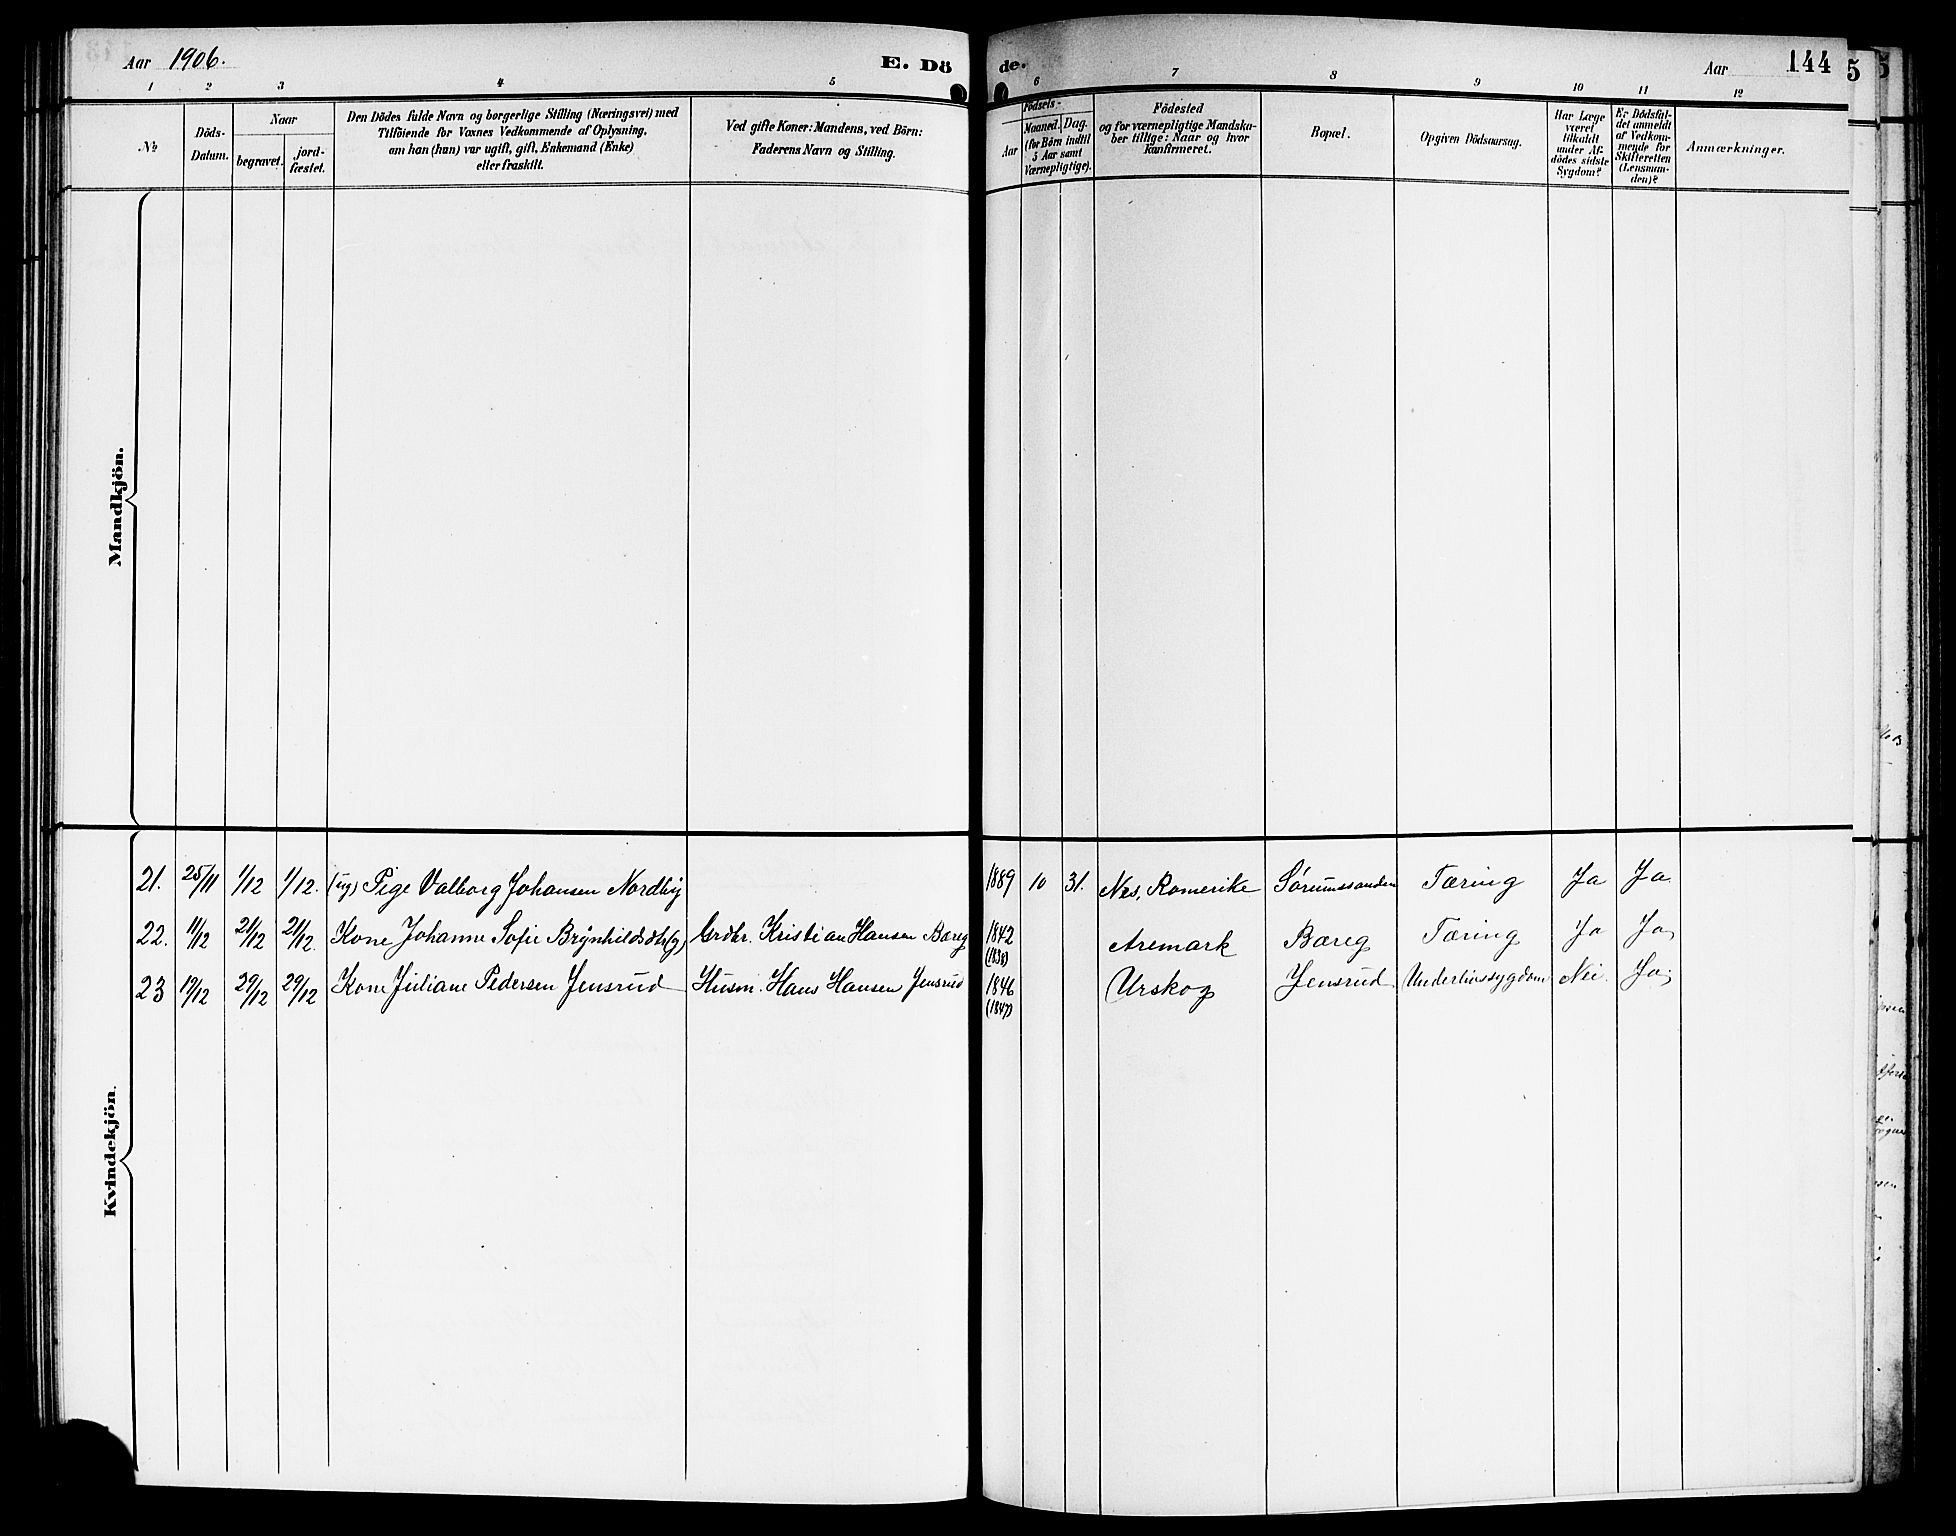 Aar 1906. E. Dö de. Aar 144
1 2 3 4 5 6 7 8 9 10 11 12
№
Döds-
Datum.
Naar
begravet.
jord-
fæstet.
Den Dödes fulde Navn og borgerlige Stilling (Næringsvei) med
Tilföiende for Voxnes Vedkommende af Oplysning,
om han (hun) var ugift, gift, Enkemand (Enke)
eller fraskilt.
Ved gifte Koner: Mandens, ved Börn:
Faderens Navn og Stilling.
Födsels-
Aar
Maaned. Dag.
(for Börn indtil
5 Aar samt
Værnepligtige).
Födested
og for værnepligtige Mandska-
ber tillige: Naar og hvor
konfirmeret.
Bopæl.
Opgiven Dödsaarsag.
Har Læge
været
tilkaldt
under Af-
dödes sidste
Sygdom?
Er Dödsfal-
det anmeldt
af Vedkom-
mende for
Skifteretten
(Lensman-
den)?
Anmærkninger.
Mandkjön.
Kvindekjön.
21. 25/11 1/12 1/12. (ug) Pige Valborg Johansen Nordby 1889 10 31. Nes, Romerike Sørumssanden Tæring Ja Ja
22. 11/12 21/12 21/12. Kone Johanne Sofie Brynhildsdtr (g) Grdbr. Kristian Hansen Bæreg 1842 Aremark Bæreg Tæring Ja Ja
(1838)
23 19/12 29/12 29/12 Kone Juliane Pedersen Jensrud Husm. Hans Hansen Jensrud 1846 Urskog Jensrud Underlivssygdom Nei. Ja
(1847)
5
5